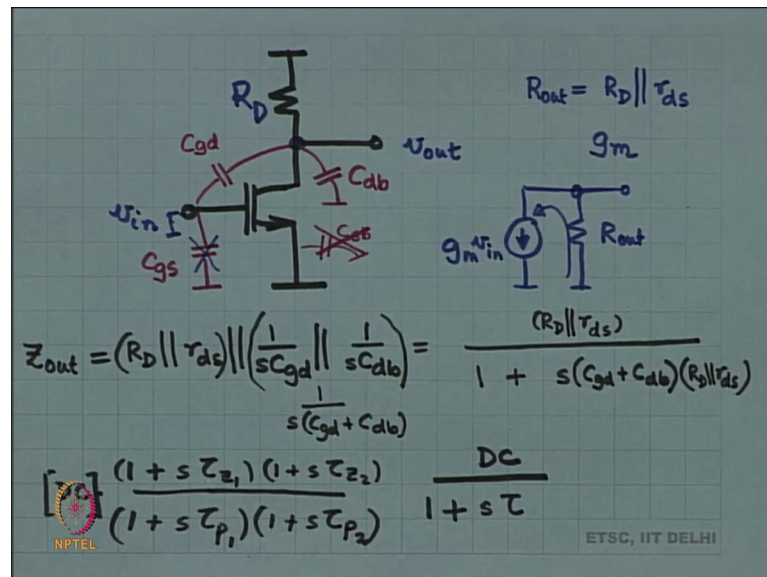 R_D
R_out = R_D || r_ds
C_gd
v_out
g_m
C_db
v_in
C_gs
g_m v_in
R_out
Z_out = (R_D || r_ds) || (1/sC_gd || 1/sC_db) = (R_D || r_ds) / 1 + s(C_gd + C_db)(R_D || r_ds)
1/s(C_gd + C_db)
(1 + sτ_z1)(1 + sτ_z2) / (1 + sτ_p1)(1 + sτ_p2)
DC / 1 + sτ
NPTEL
ETSC, IIT DELHI